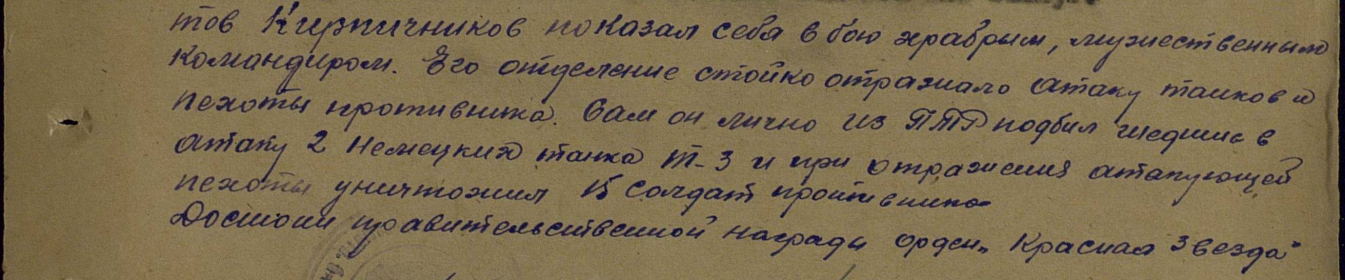 тов Кирпичников показал себя в бою храбрым, мужественным
командиром. Его отделение стойко отражало атаку танков и
пехоты противника. Сам он лично из ПТР подбил шедших в
атаку 2 немецких танка Т-3 и при отражения атакующей
пехоты уничтожил 15 солдат противника
Достоин правительственной награды орден „Красная Звезда"